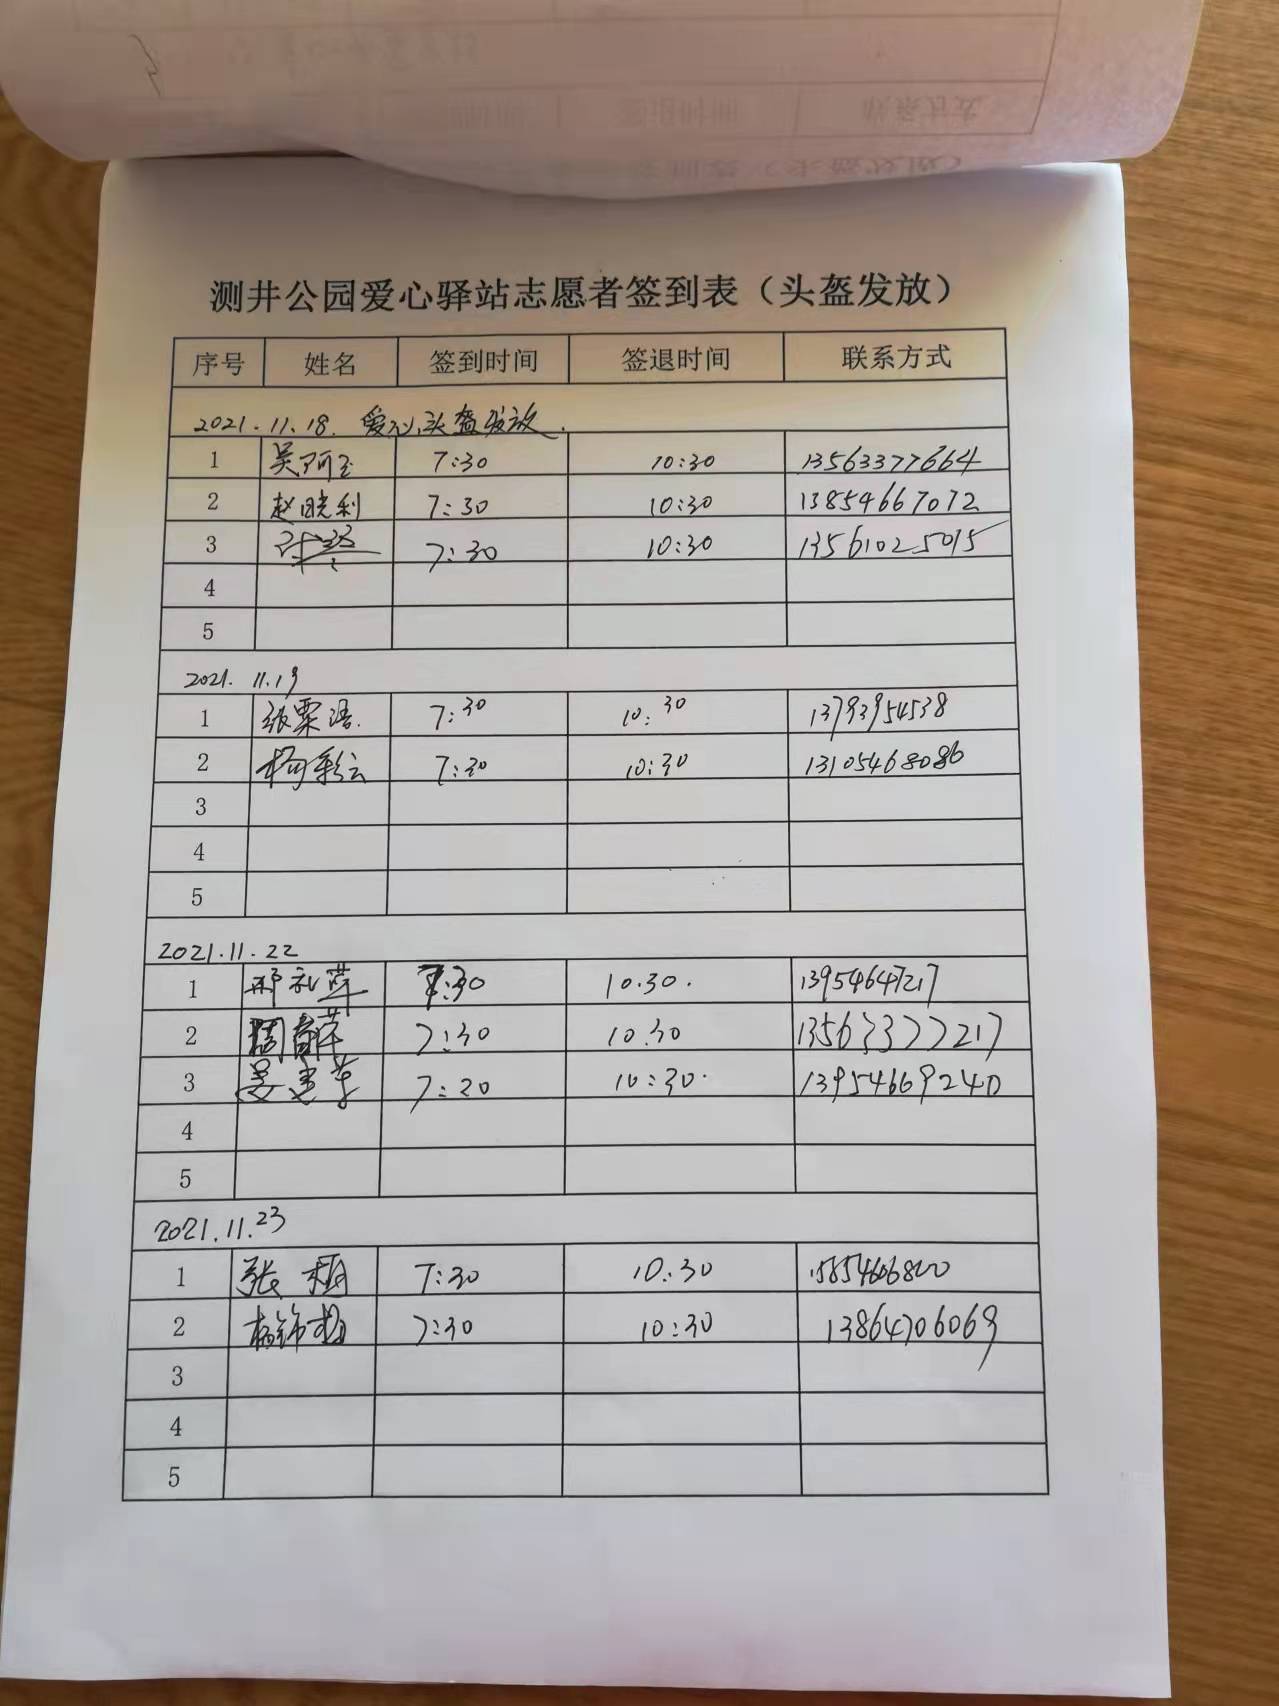 测井公园爱心驿站志愿者签到表（头盔发放）
序号 姓名 签到时间 签退时间 联系方式
2021.11.18. 爱心头盔发放.
1 吴阿玉 7:30 10:30 13563377664
2 赵晓利 7:30 10:30 13854667072
3 7:30 10:30 13561025015
4
5
2021. 11.19
1 张粟语. 7:30 10:30 13793954538
2 杨彩云 7:30 10:30 13105468086
3
4
5
2021.11.22
1 7:30 10.30. 13954647217
2 7:30 10.30 13563377217
3 7:20 10:30. 13954669240
4
5
2021.11.23
1 张 7:30 10:30 15854606800
2 7:30 10:30 13864706069
3
4
5